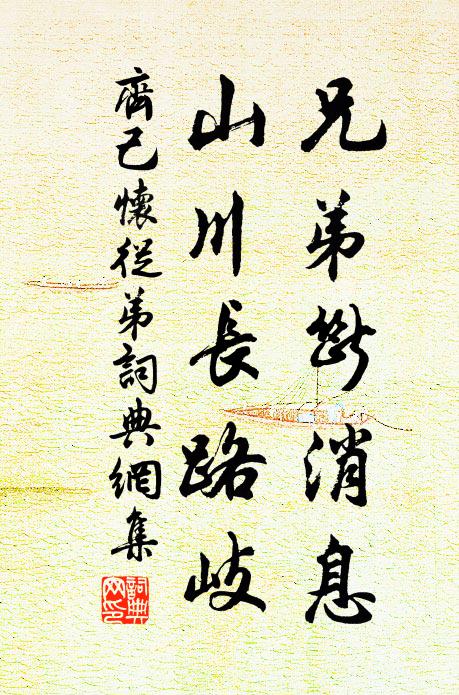 兄弟斷消息
山川長路岐
齊己懷從弟詞典網集
詞典
网印